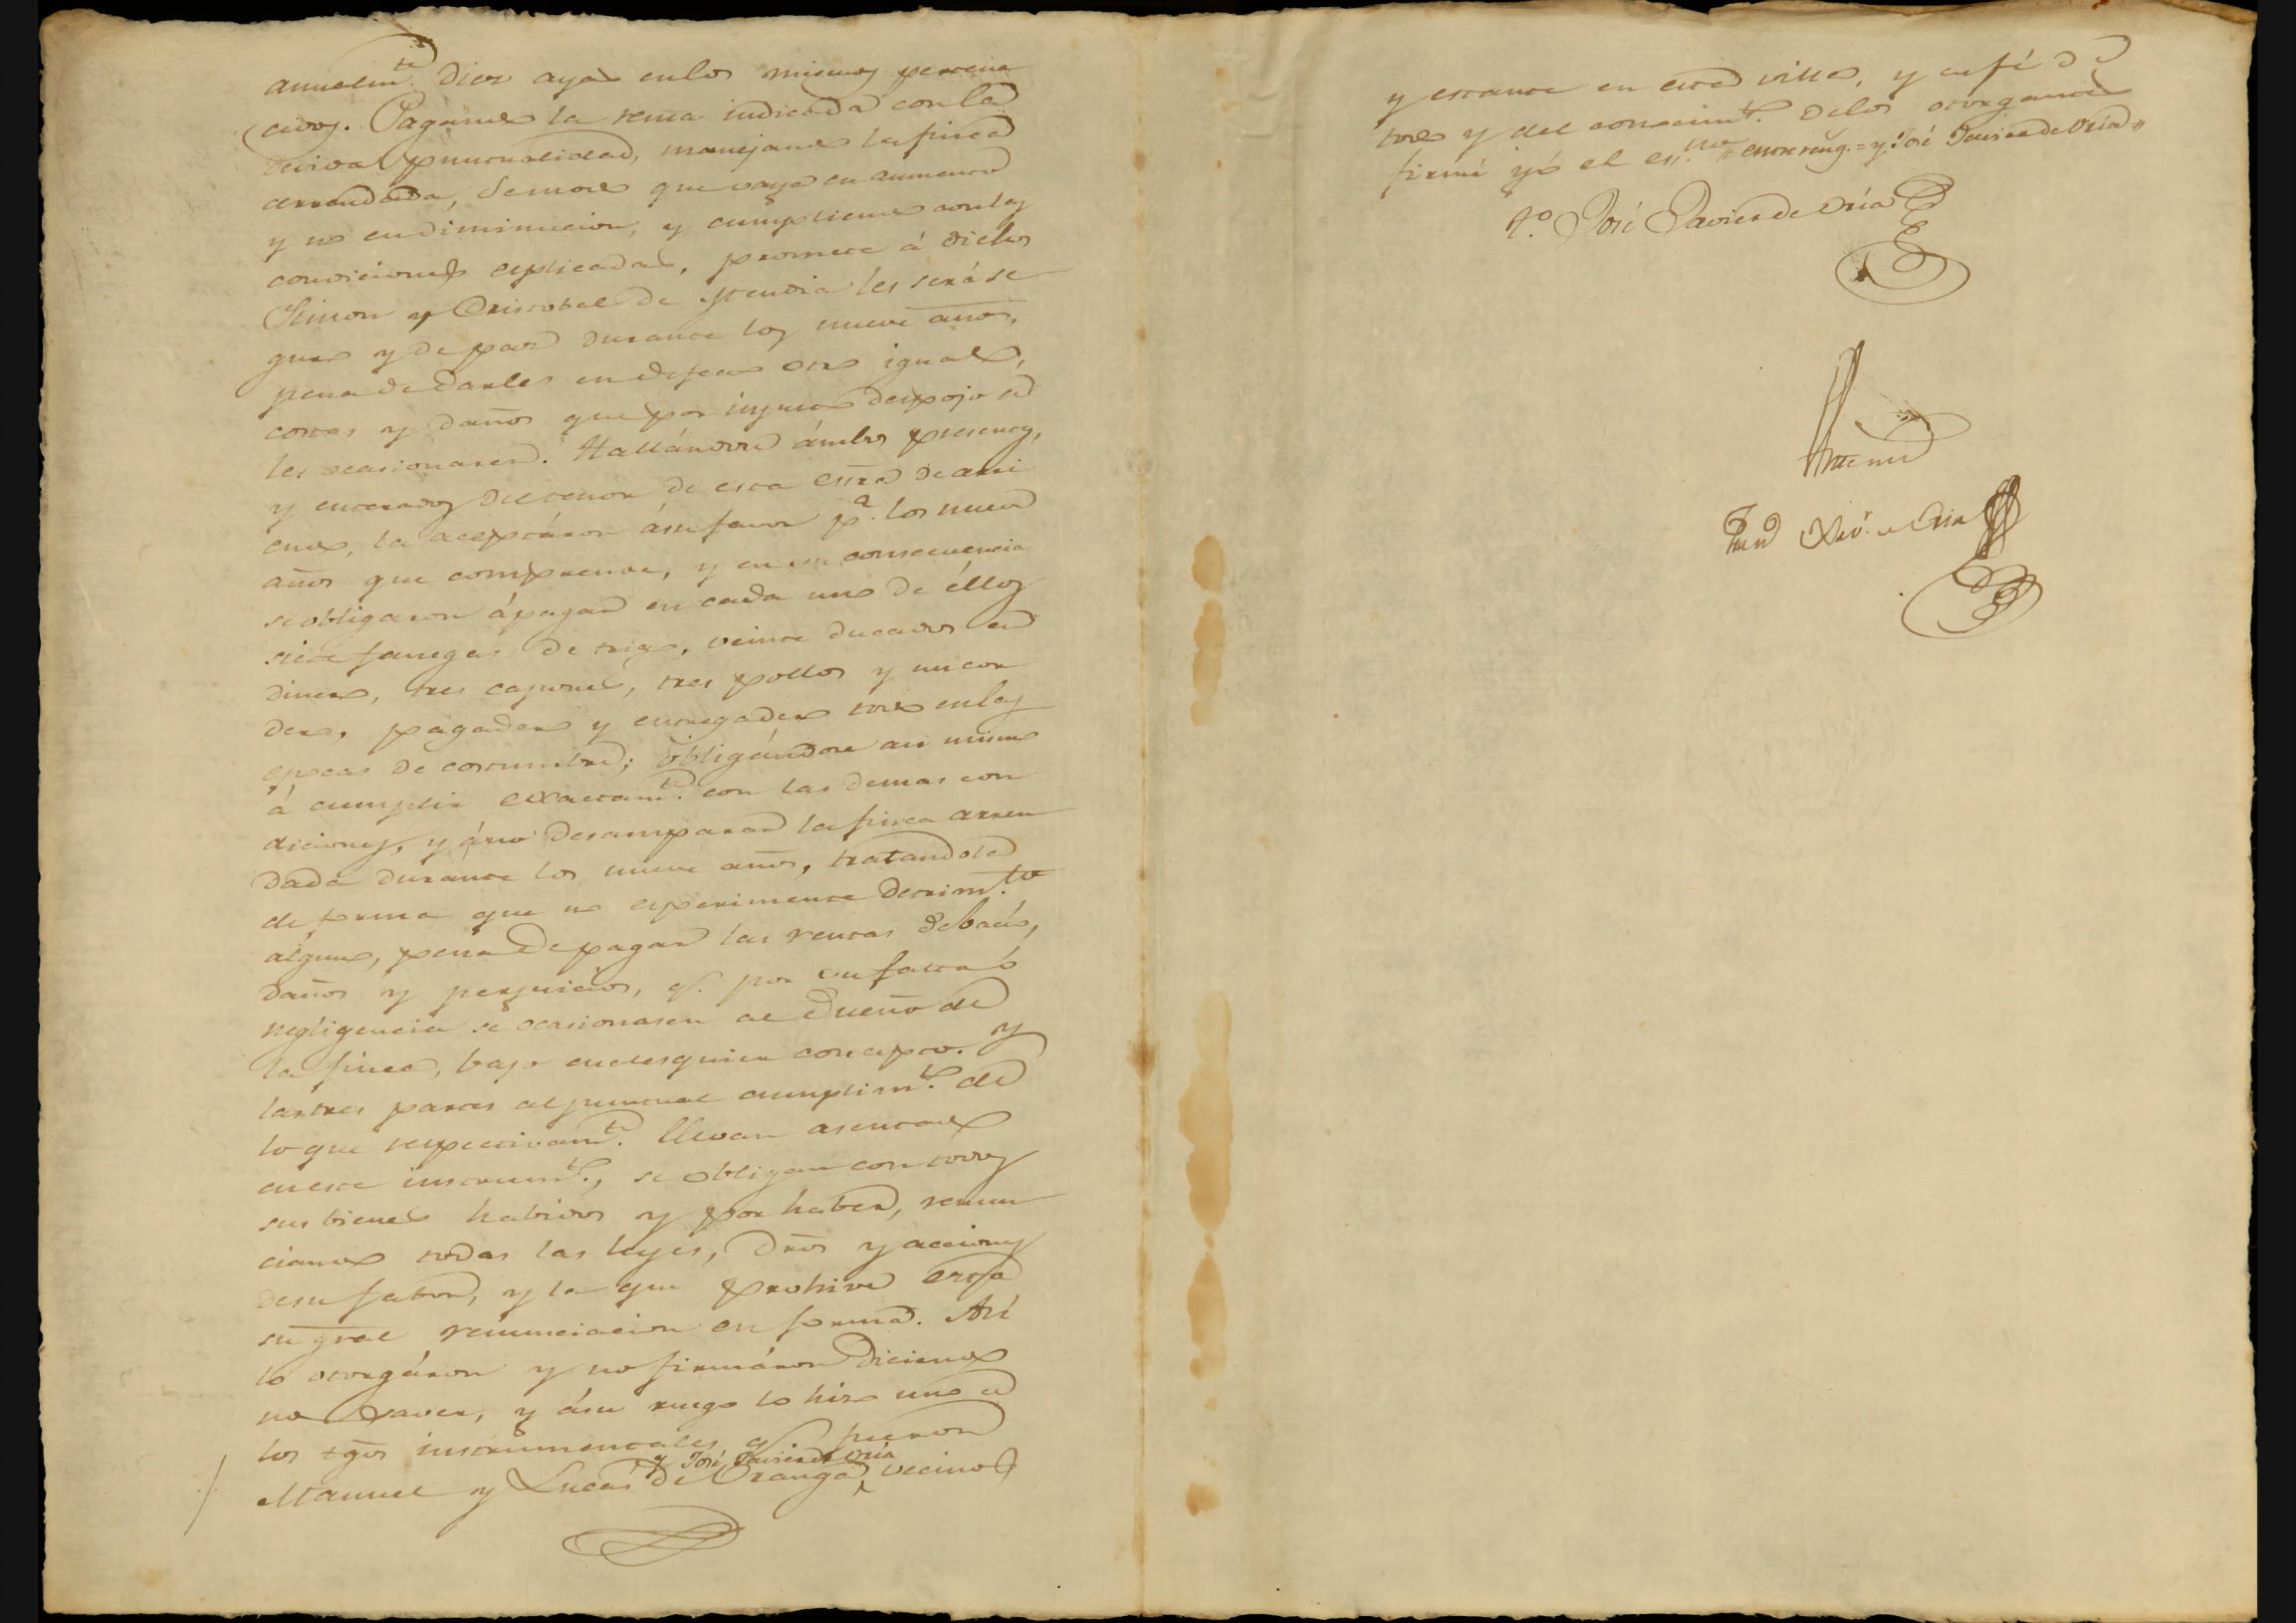 annualm.te diez ayas en los mismos pertene
cidos. Pagando la renta indicada con la
devida puntualidad, manejando la finca
arrendada, de modo que vaya en aumento
y no en diminucion, y cumpliendo con las
condiciones esplicadas, promete á dichos
Simon y Cristobal de Mendia les será se
guro y de paz durante los nueve años,
pena de darles en defecto otro igual,
costas y daños que por injusto despojo se
les ocasionaren. Hallándose ámbos presentes,
y enterados del tenor de esta essra de arri
endo, la aceptáron ásu favor p.a los nueve
años que comprende, y en su consecuencia
se obligaron ápagar en cada uno de éllos
siete fanegas de trigo, veinte ducados en
dinero, tres capones, tres pollos y un cor
dero, pagadero y entregadero todo en las
epocas de costumbre; obligándose asi mismo
á cumplir exactam.te con las demas con
diciones, y áno desamparar la finca arren
dada durante los nueve años, tratandola
de forma que no esperimente detrim.to
alguno, pena de pagar las rentas de bacio,
daños y perjuicios, q.e por su falta ó
negligencia se ocasionasen al Dueño de
la finca, bajo cualesquier concepto. Y
las tres partes al puntual cumplim.to de
lo que respectivam.te llevan asentado
en este instrum.to, se obligan con todos
sus bienes habidos y por haber, renun
ciando todas las leyes, dr̃os y acciones
de su fabor, y la que prohive
su gral renunciacion en forma. Asi
lo otorgáron y no firmáron diciendo
no saver, y ásu ruego lo hizo uno de
los tgõs instrumentales q.e fueron
y José Javier de Oria
Manuel y Lucas de Oranga, vecinos
y estante en esta villa, y en fé de
todo y del conocim.to de los otorgantes
firmé yó el ess.no = entre reng.s = y José Javier de Oria =
T.o José Javier de Oria
Ante mi
Juan Xav.r de Oria